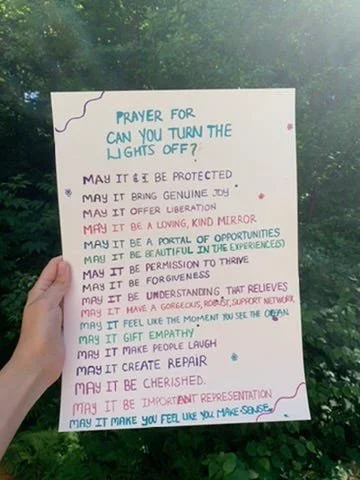 PRAYER FOR
CAN YOU TURN THE
LIGHTS OFF?
MAY IT & I BE PROTECTED
MAY IT BRING GENUINE JOY
MAY IT OFFER LIBERATION
MAY IT BE A LOVING, KIND MIRROR
MAY IT BE A PORTAL OF OPPORTUNITIES
MAY IT BE BEAUTIFUL IN THE EXPERIENCE(S)
MAY IT BE PERMISSION TO THRIVE
MAY IT BE FORGIVENESS
MAY IT BE UNDERSTANDING THAT RELIEVES
MAY IT HAVE A GORGEOUS, ROBUST, SUPPORT NETWORK
MAY IT FEEL LIKE THE MOMENT YOU SEE THE OCEAN
MAY IT GIFT EMPATHY
MAY IT MAKE PEOPLE LAUGH
MAY IT CREATE REPAIR
MAY IT BE CHERISHED.
MAY IT BE IMPORTANT REPRESENTATION
MAY IT MAKE YOU FEEL LIKE YOU MAKE SENSE